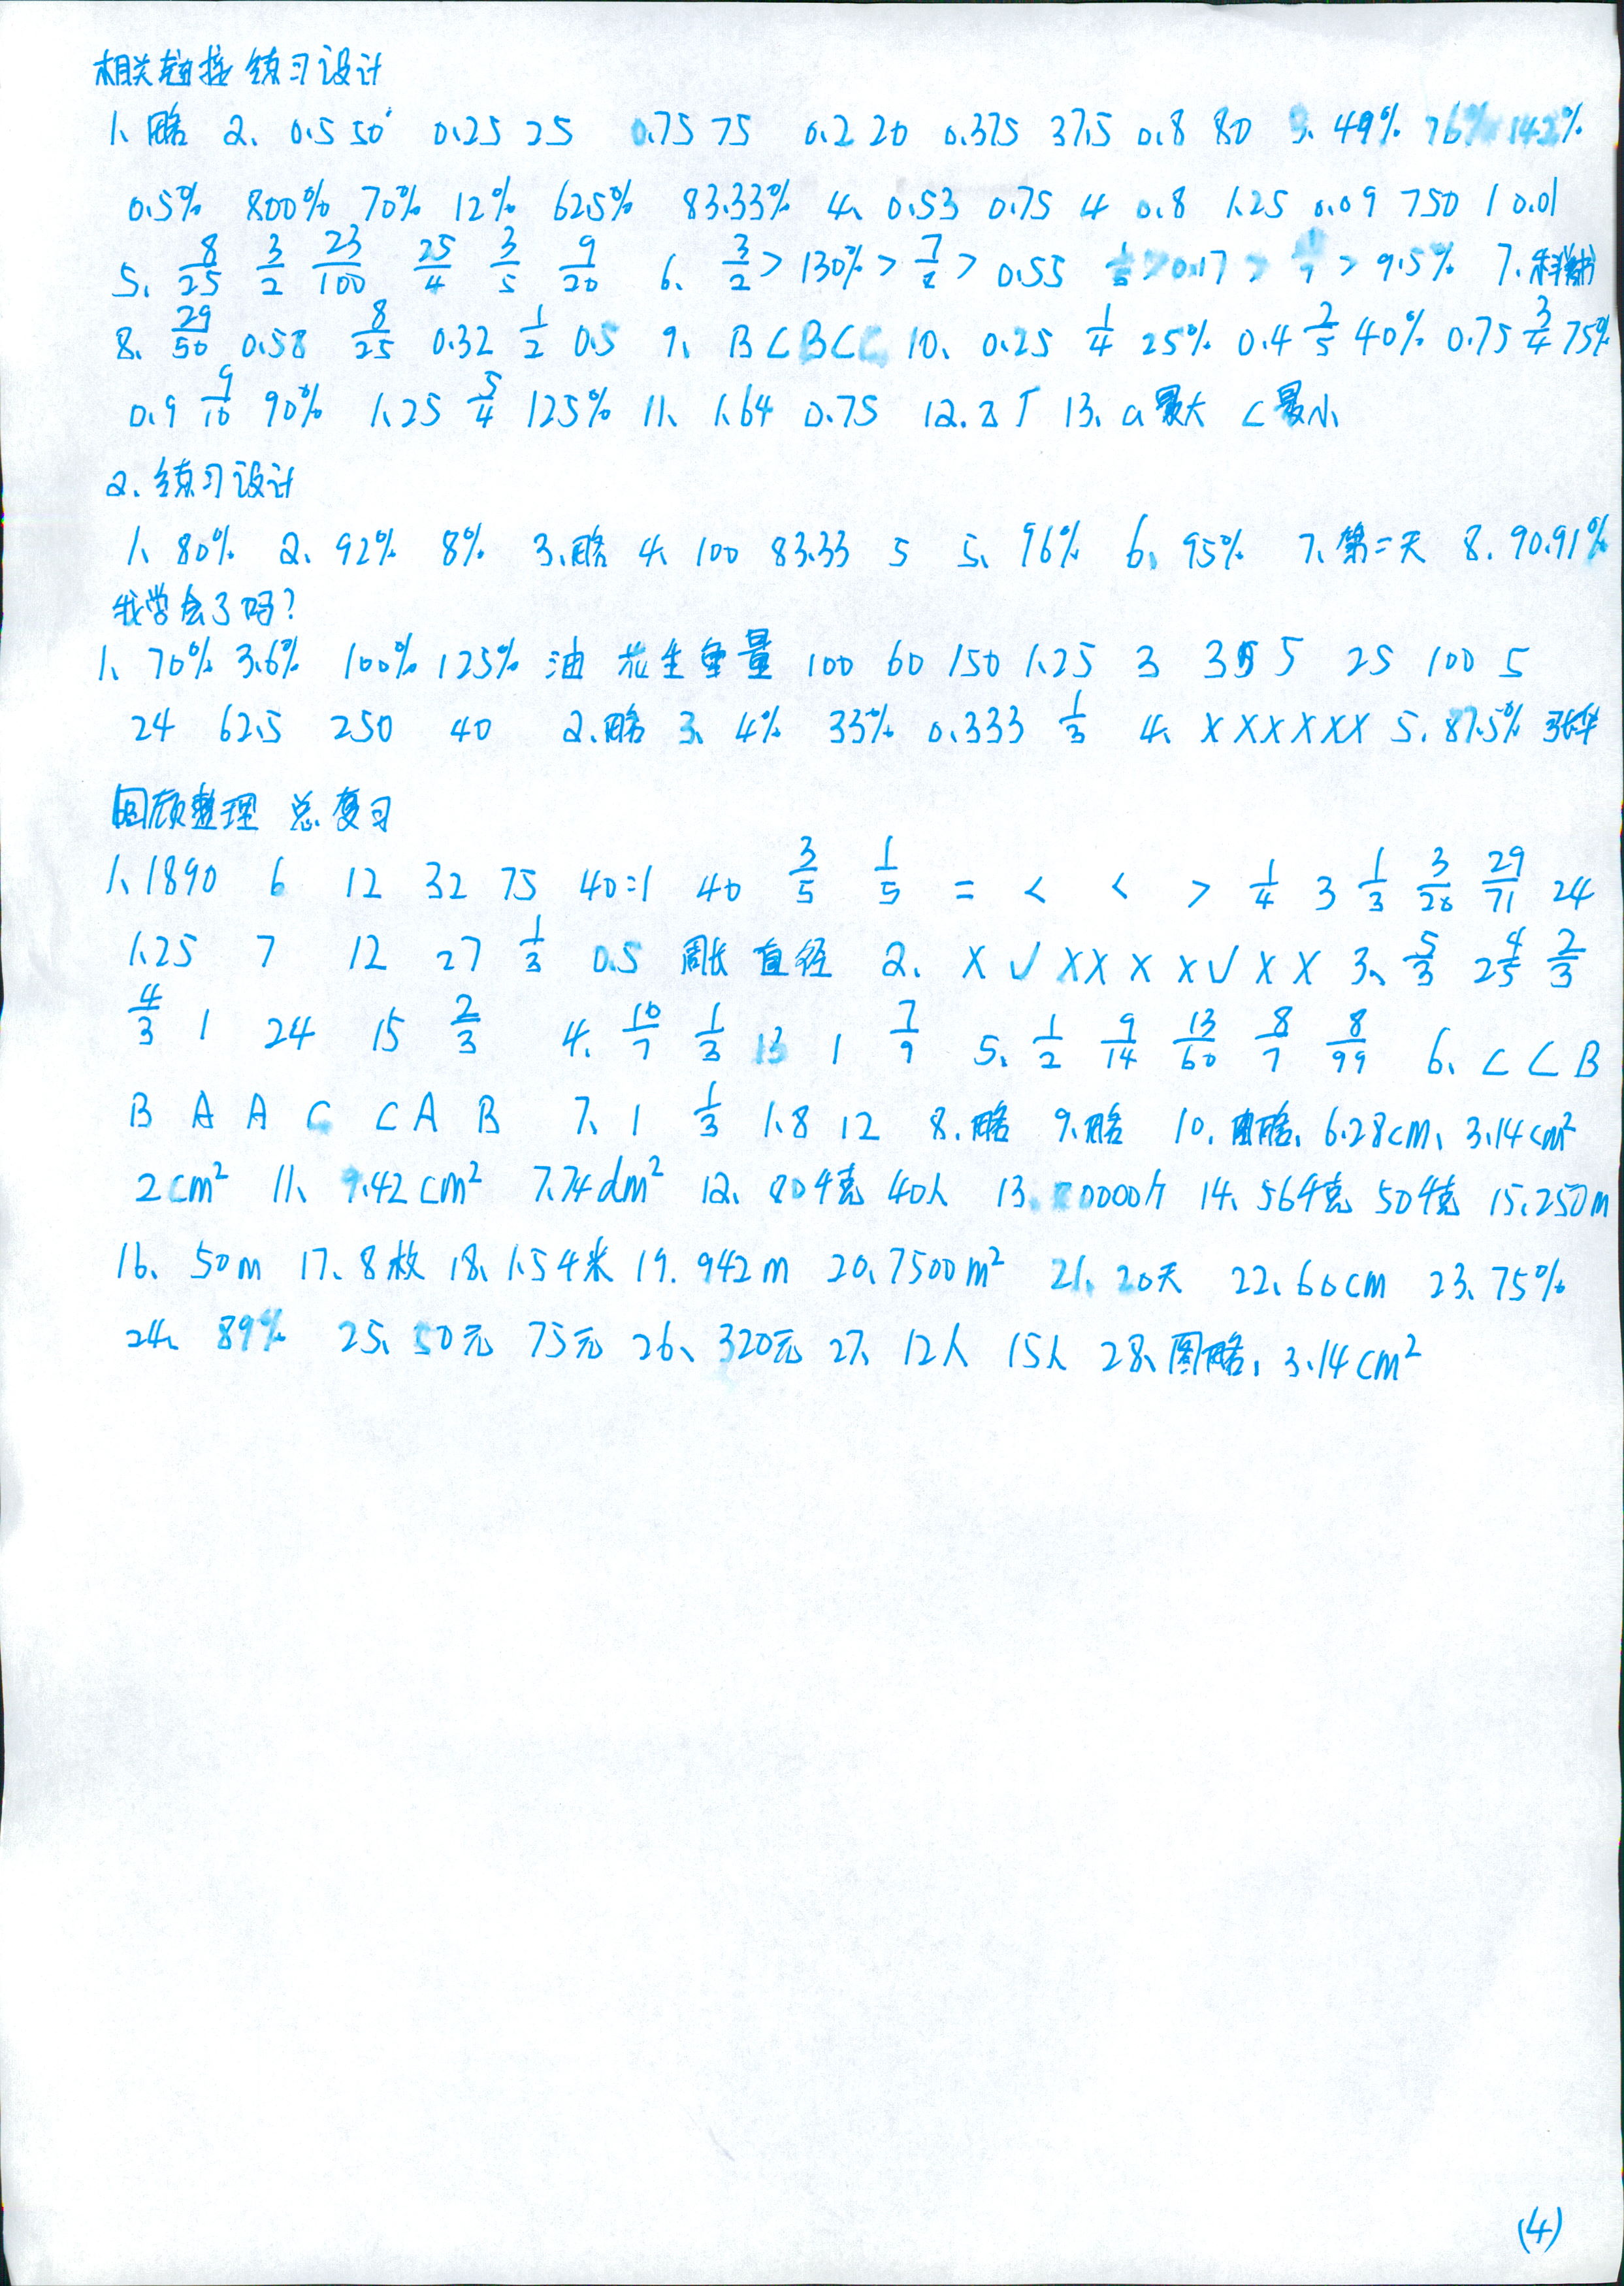 相关链接 练习设计
1、略 2、0.5 50 0.25 25 0.75 75 0.2 20 0.375 37.5 0.8 80 3、49% 76% 142%
0.5% 800% 70% 12% 62.5% 83.33% 4、0.53 0.75 4 0.8 1.25 0.09 750 1 0.01
5、8/25 3/2 23/100 25/4 3/5 9/20 6、3/2 > 130% > > 0.55 > 0.17 > > 9.5% 7、科学书
8、29/50 0.58 8/25 0.32 1/2 0.5 9、B C B C C 10、0.25 1/4 25% 0.4 2/5 40% 0.75 3/4 75%
0.9 9/10 90% 1.25 5/4 125% 11、1.64 0.75 12. 13、a最大 c最小
2、练习设计
1、80% 2、92% 8% 3、略 4、100 83.33 5 5、96% 6、95% 7、第二天 8、90.91%
我学会了吗?
1、70% 3.6% 100% 125% 油 花生重量 100 60 150 1.25 3 5 25 100 5
24 62.5 250 40 2、略 3、4% 33% 0.333 1/3 4、× × × × × × 5、87.5% 张华
回顾整理 总复习
1、1890 6 12 32 75 40:1 40 3/5 1/5 = < < > 1/4 3 1/3 3/20 29/71 24
1.25 7 12 27 1/3 0.5 周长 直径 2、× √ × × × × √ × × 3、5/3 2 4/5 2/3
4/3 1 24 15 2/3 4、10/7 1/3 13 1 7/9 5、1/2 9/14 13/60 8/7 8/99 6、C C B
B A A C C A B 7、1 1/3 1.8 12 8、略 9、略 10、图略、6.28cm、3.14cm²
2cm² 11、9.42cm² 7.74dm² 12、804克 40人 13、0000个 14、564克 504克 15、250m
16、50m 17、8枚 18、1.54米 19、942m 20、7500m² 21、20天 22、60cm 23、75%
24、89% 25、50元 75元 26、320元 27、12人 15人 28、图略，3.14cm²
(4)